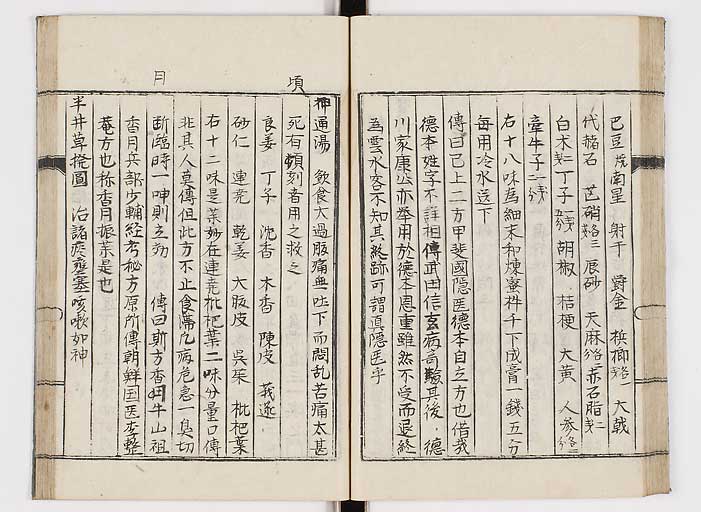 巴豆 南星 射干 欝金 梹榔 大戟
代赭石 芒硝 辰砂 天麻 赤石脂
白朮 丁子 胡椒 桔梗 大黄 人参
牽牛子
右十八味為細末和煉蜜杵千下成膏一錢五分
毎用冷水送下
傳曰已上二方甲斐國隠医徳本自立方也借哉
徳本姓字不詳相傳武田信玄病奇驗其後徳
川家康公亦挙用於徳本恩重雖然不受而退終
為雲水客不知其終跡可謂真隠医乎
神通湯 飲食大過腹痛無吐下而悶乱苦痛太甚
頃
死有頃刻者用之救之
良姜 丁子 沈香 木香 陳皮 莪蒁
砂仁 連壳 乾姜 大腹皮 呉茱 枇杷葉
右十二味是薬妙在連壳枇杷葉二味分量口傳
非其人莫傳但此方不止食滞凡病危急一臭切
断臨時一呷則立効 傳曰斯方香月牛山祖
月
香月兵部少輔経考秘方原所傳朝鮮国医李整
菴方也称香月振薬是也
半井草掩圓 治諸痰壅塞咳嗽如神